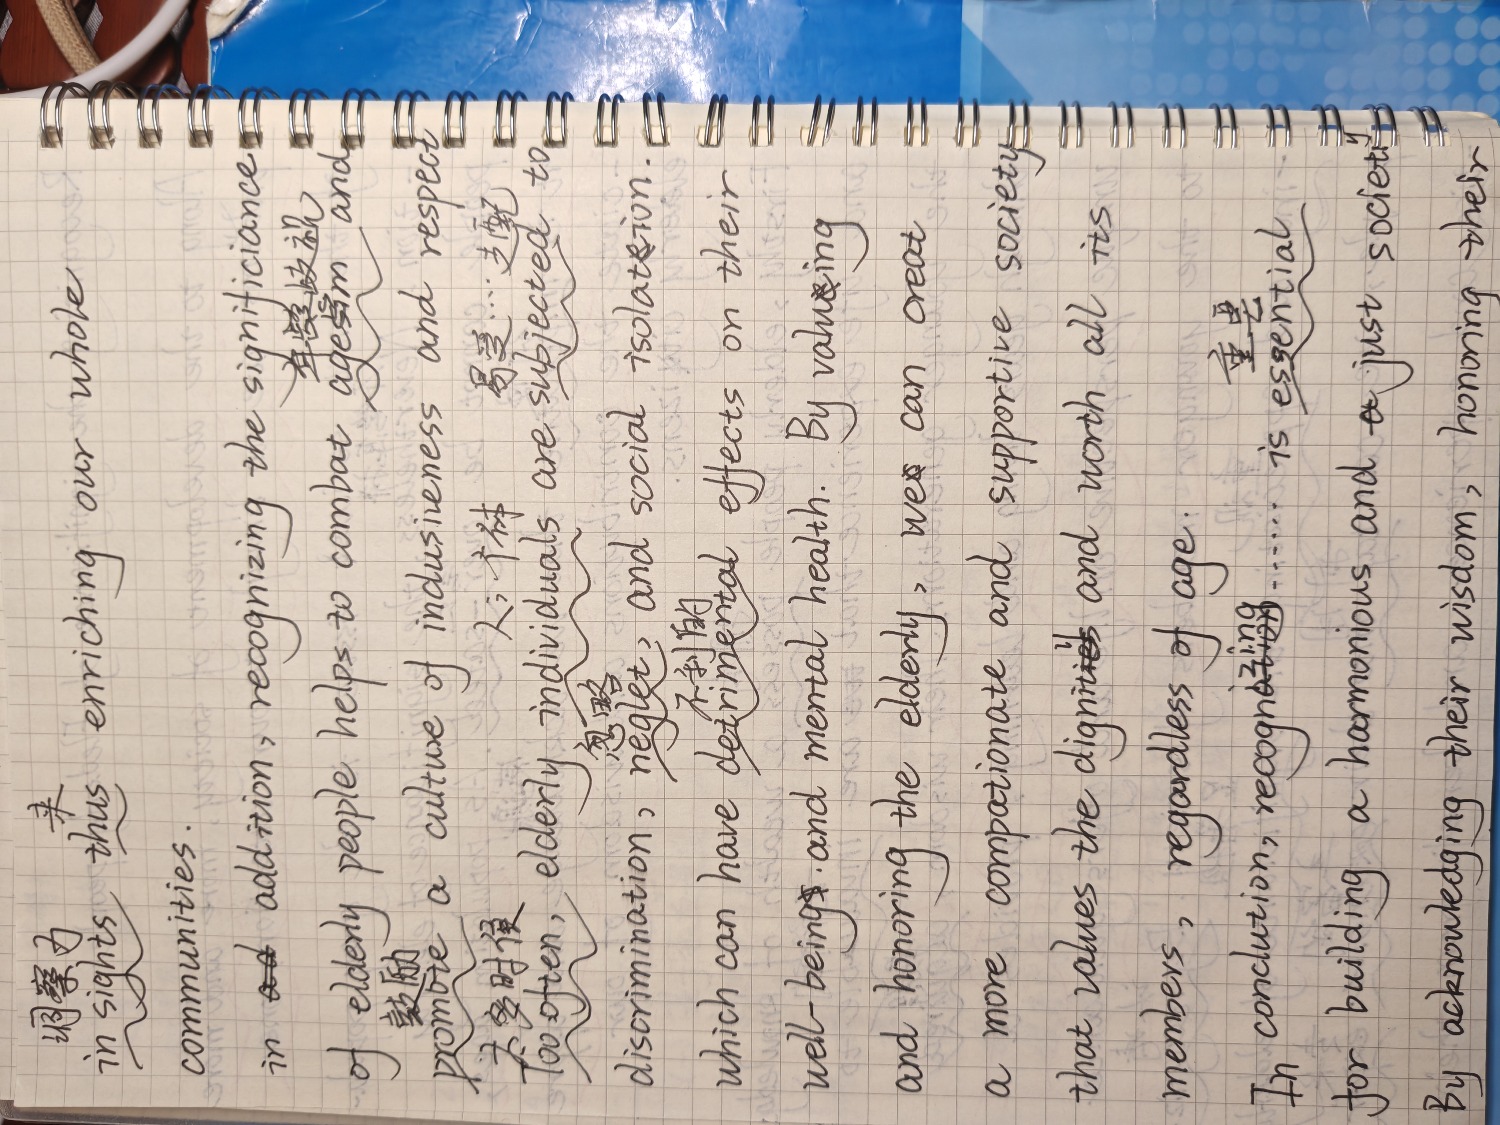 洞察力 来
in sights thus enriching our whole
communities.
in addition, recognizing the significiance
年龄歧视
of elderly people helps to combat ageism and
鼓励
promote a culture of indusiveness and respect
太多时候 人;个体 易受…支配
Too often, elderly individuals are subjected to
忽略
discrimination, neglet, and social isolation.
不利的
which can have detrimental effects on their
well-being and mental health. By valuing
and honoring the elderly, we can creat
a more compationate and supportive society
that values the dignity and worth all its
members, regardless of age.
重是
In conclution, recognizing...... is essential
for building a harmonious and just society
By acknowledging their wisdom, honoring their